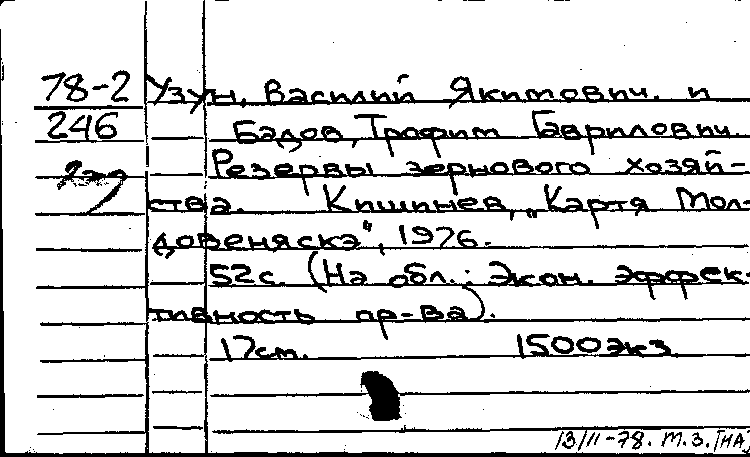 78-2 Узун, Василий Якимович. и
246 Бадов, Трофим Гаврилович.
2экз Резервы зернового хозяй-
ства. Кишинев, „Картя Мол-
довеняскэ", 1976.
52 с. (На обл.: Экон. эффек-
тивность пр-ва).
17 см. 1500 экз.
13/II-78. М.З. [НА]